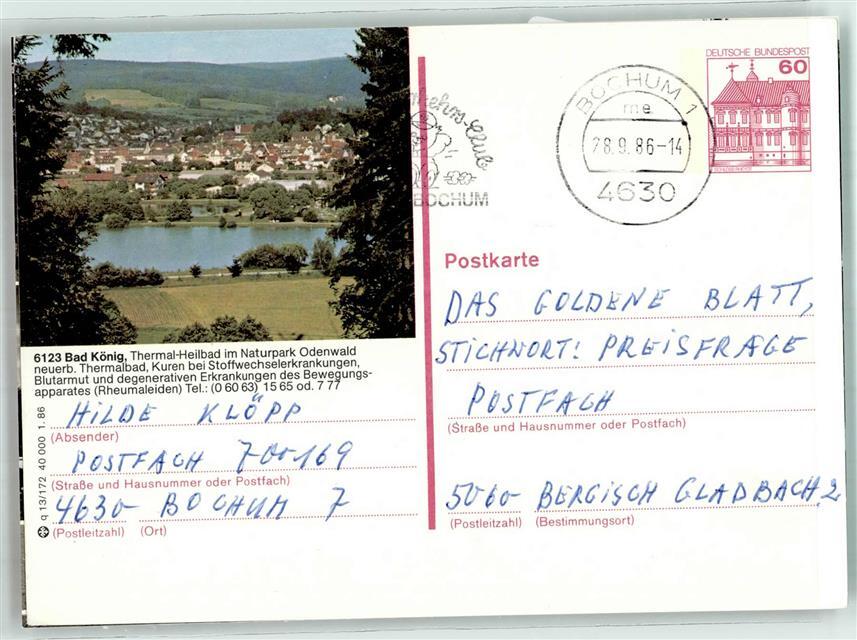 DEUTSCHE BUNDESPOST
60
SCHLOSS RHEYDT
BOCHUM 1
me
28.9.86-14
4630
BOCHUM
Postkarte
DAS GOLDENE BLATT,
STICHWORT! PREISFRAGE
POSTFACH
(Straße und Hausnummer oder Postfach)
5060- BERGISCH GLADBACH 2
(Postleitzahl) (Bestimmungsort)
6123 Bad König, Thermal-Heilbad im Naturpark Odenwald
neuerb. Thermalbad, Kuren bei Stoffwechselerkrankungen,
Blutarmut und degenerativen Erkrankungen des Bewegungs-
apparates (Rheumaleiden) Tel.: (0 60 63) 15 65 od. 7 77
HILDE KLÖPP
(Absender)
POSTFACH 700169
(Straße und Hausnummer oder Postfach)
4630- BOCHUM 7
(Postleitzahl) (Ort)
q 13/172 40 000 1. 86